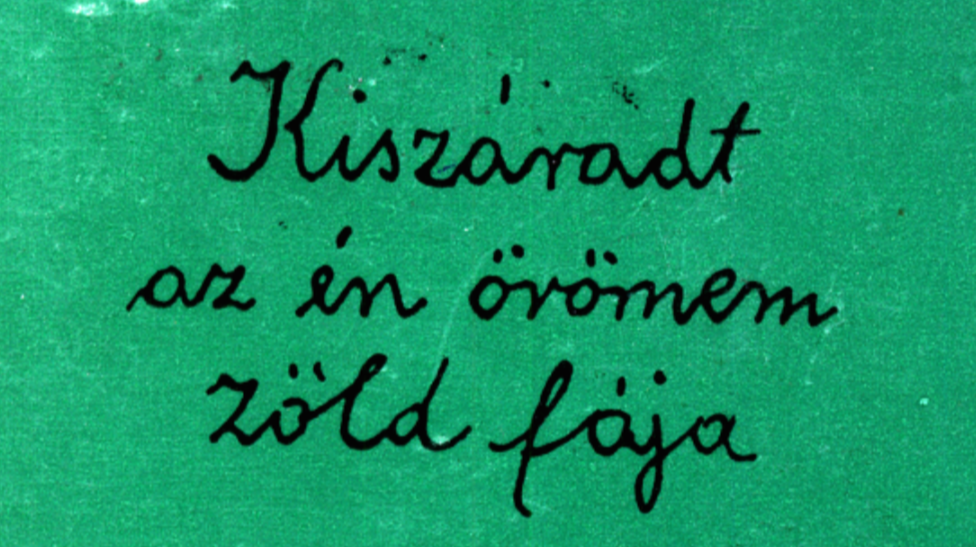 Kiszáradt
az én örömem
zöld fája